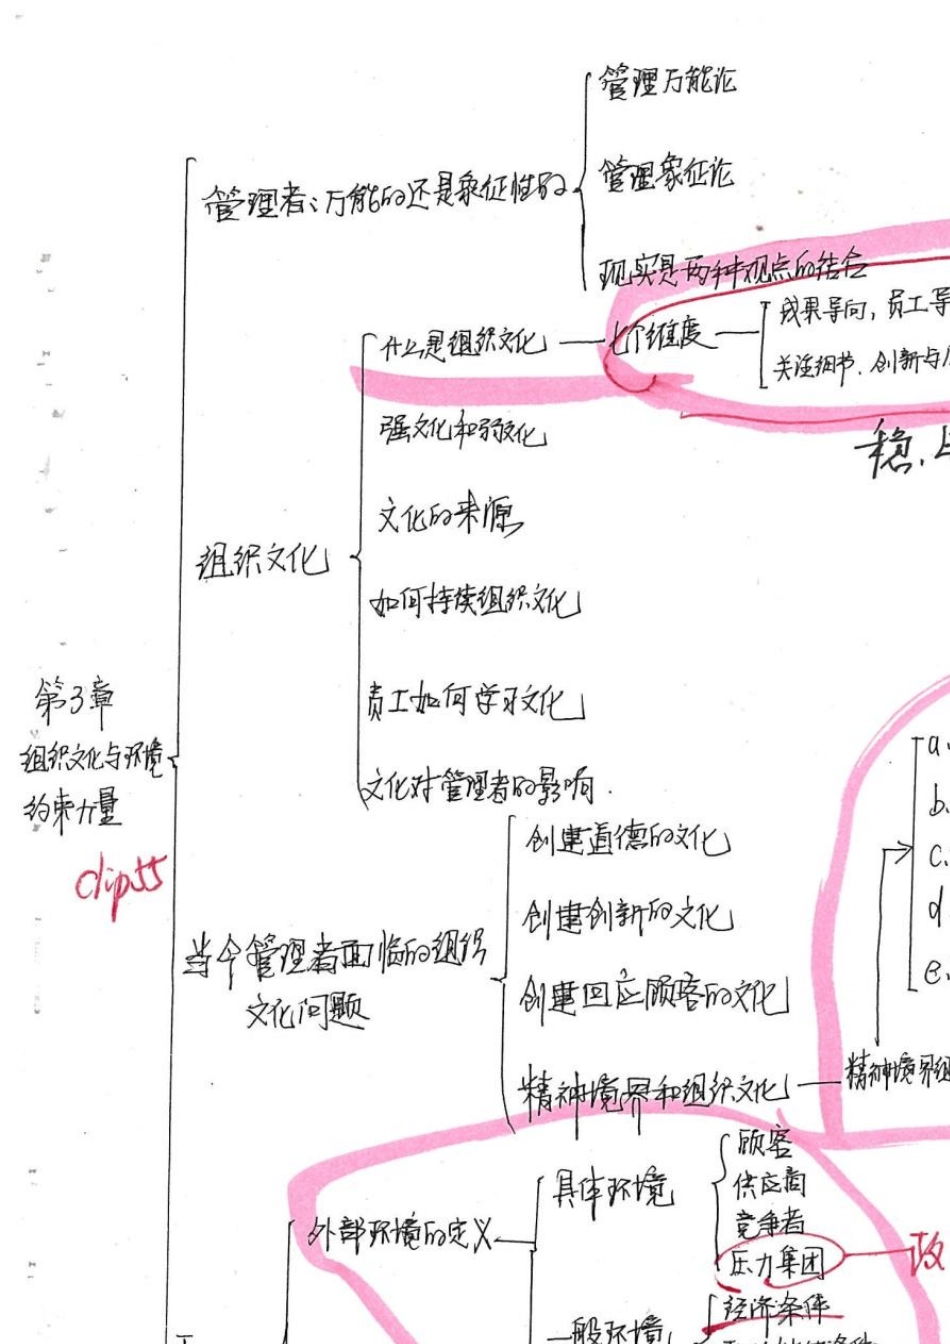 管理万能论
管理者：万能的还是象征性的
管理象征论
现实是两种观点的结合
什么是组织文化
七个维度
成果导向，员工导
关注细节．创新与
强文化和弱文化
稳．
文化的来源
组织文化
如何持续组织文化
员工如何学习文化
文化对管理者的影响．
第3章
组织文化与环境
约束力量
创建道德的文化
创建创新的文化
当今管理者面临的组织
文化问题
创建回应顾客的文化
精神境界和组织文化
a.
b.
c.
d
e.
精神境界组
外部环境的定义
具体环境
顾客
供应商
竞争者
压力集团
政
一般环境
经济条件